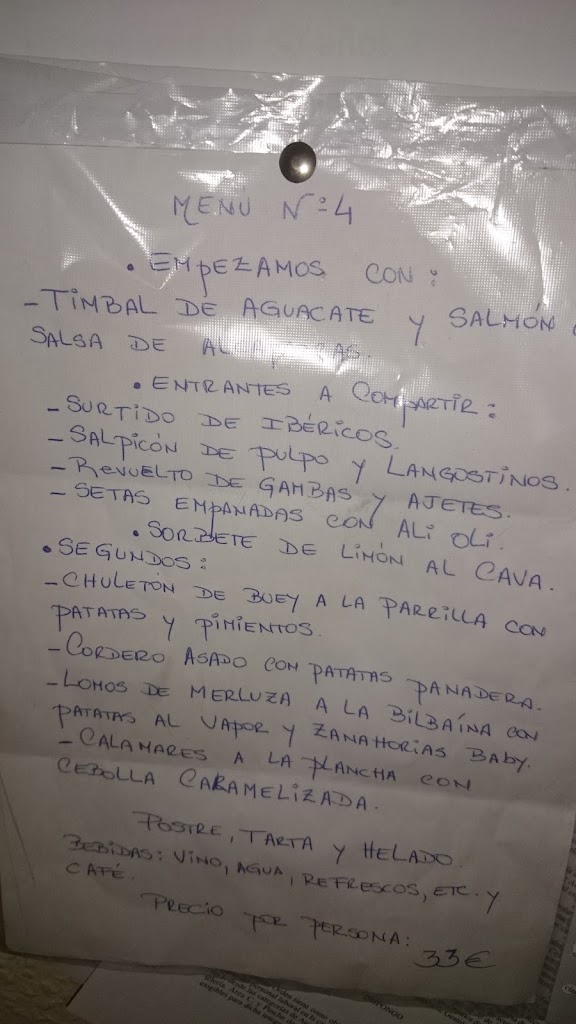 MENÚ Nº 4
• EMPEZAMOS CON:
- TIMBAL DE AGUACATE Y SALMÓN
SALSA DE
• ENTRANTES A COMPARTIR:
- SURTIDO DE IBÉRICOS.
- SALPICÓN DE PULPO Y LANGOSTINOS.
- REVUELTO DE GAMBAS Y AJETES.
- SETAS EMPANADAS CON ALI OLI.
• SORBETE DE LIMÓN AL CAVA.
• SEGUNDOS:
- CHULETÓN DE BUEY A LA PARRILLA CON
PATATAS Y PIMIENTOS.
- CORDERO ASADO CON PATATAS PANADERA.
- LOMOS DE MERLUZA A LA BILBAÍNA CON
PATATAS AL VAPOR Y ZANAHORIAS BABY.
- CALAMARES A LA PLANCHA CON
CEBOLLA CARAMELIZADA.
POSTRE, TARTA Y HELADO.
BEBIDAS: VINO, AGUA, REFRESCOS, ETC. Y
CAFÉ.
PRECIO POR PERSONA:
33€